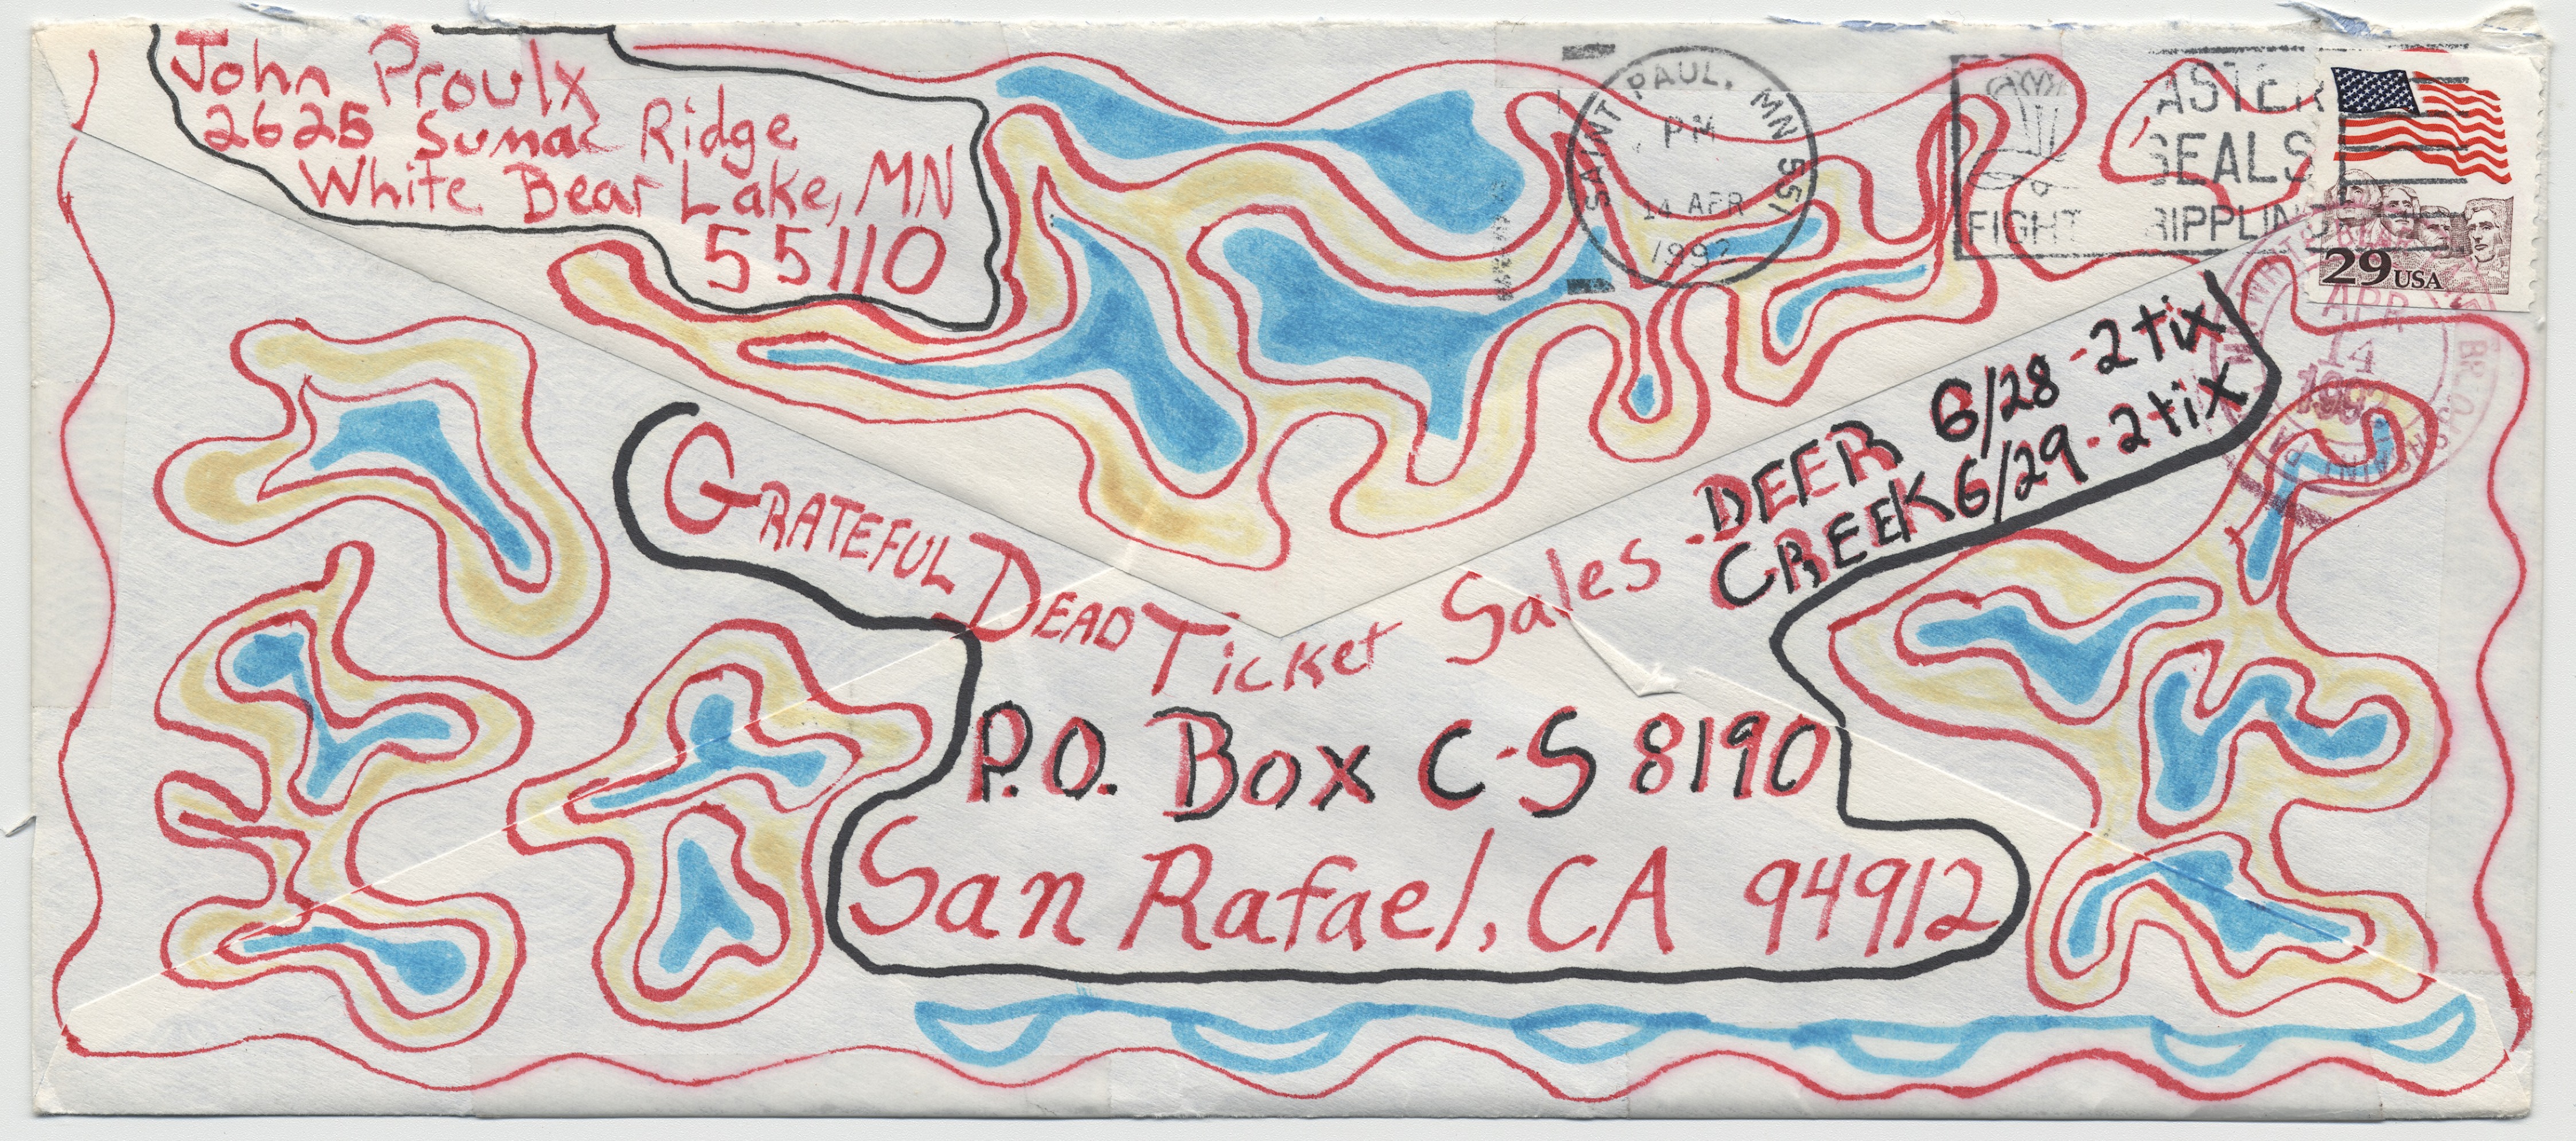 John Proulx
2625 Sumac Ridge
White Bear Lake, MN
55110
SAINT PAUL, MN 551
PM
14 APR
1992
ASTER
SEALS
FIGHT RIPPLING
29 USA
APR
14
1992
GRATEFUL DEAD TICKET Sales - DEER CREEK
6/28 - 2 tix
6/29 - 2 tix
P.O. Box C-S 8190
San Rafael, CA 94912